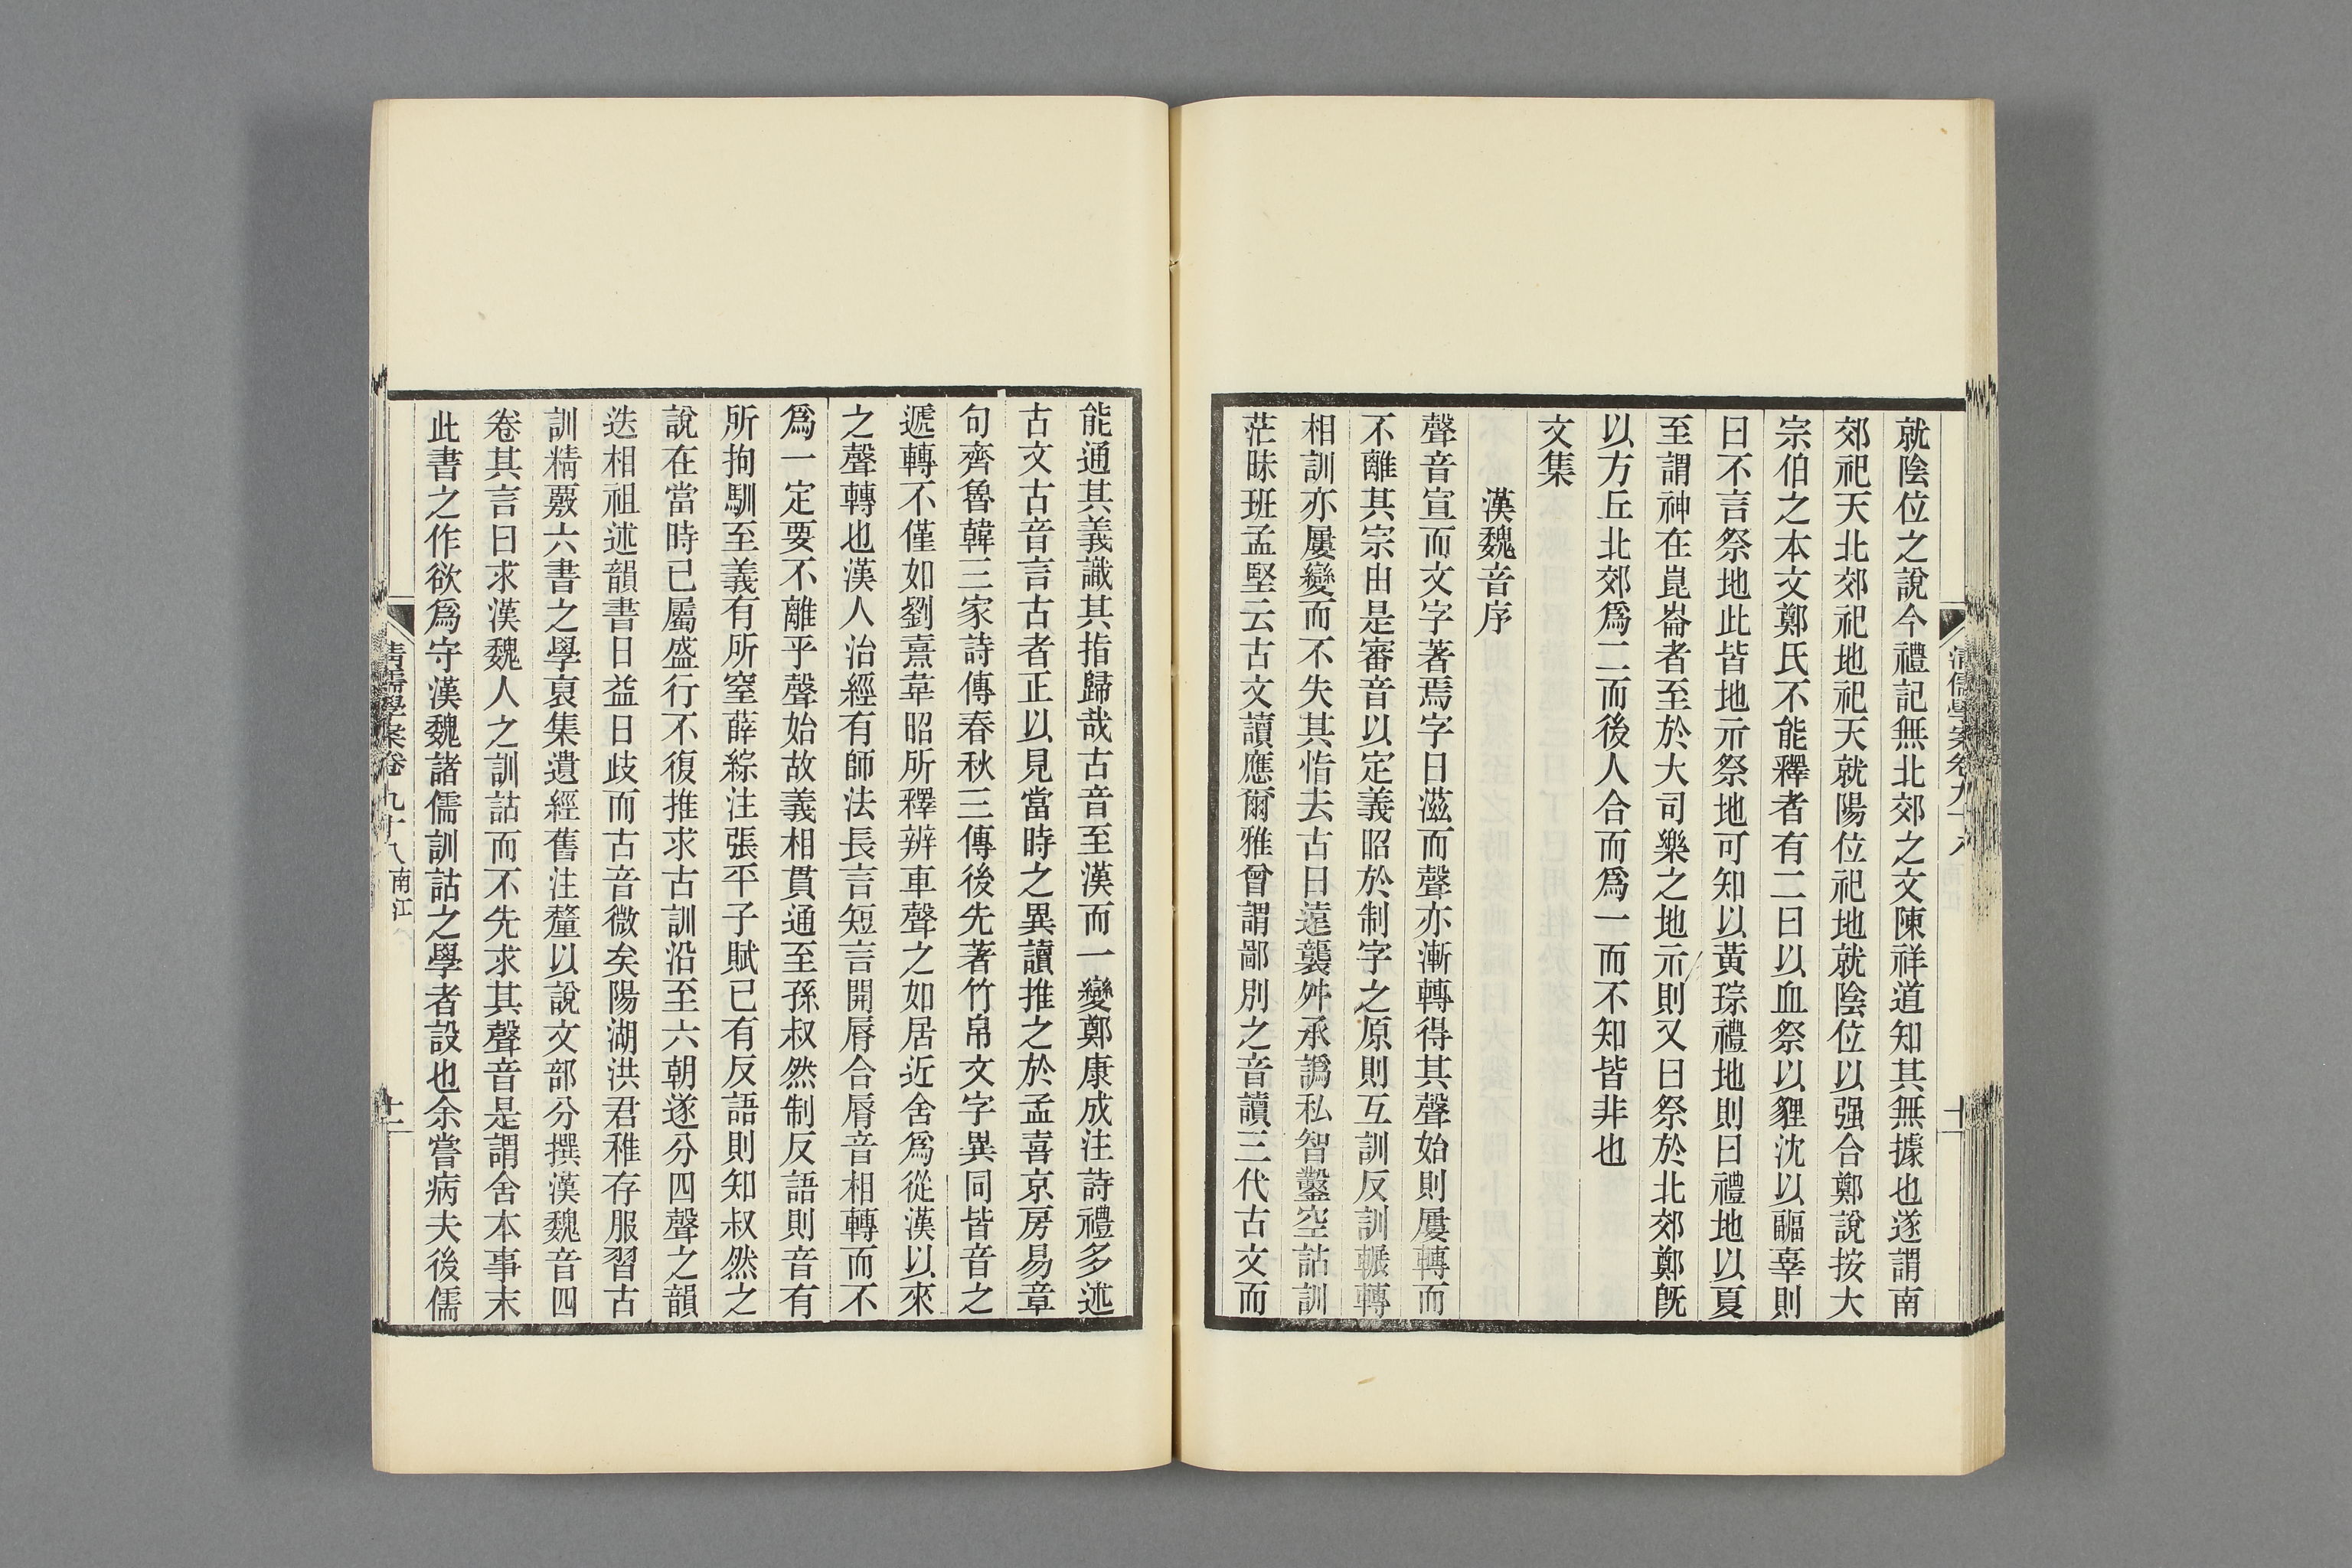 就陰位之說今禮記無北郊之文陳祥道知其無據也遂謂南
郊祀天北郊祀地祀天就陽位祀地就陰位以强合鄭說按大
宗伯之本文鄭氏不能釋者有二曰以血祭以貍沈以疈辜則
曰不言祭地此皆地示祭地可知以黃琮禮地則曰禮地以夏
至謂神在崑崙者至於大司樂之地示則又曰祭於北郊鄭旣
以方丘北郊爲二而後人合而爲一而不知皆非也
文集
漢魏音序
聲音宣而文字著焉字日滋而聲亦漸轉得其聲始則屢轉而
不離其宗由是審音以定義昭於制字之原則互訓反訓輾轉
相訓亦屢變而不失其恉去古日遠襲舛承譌私智鑿空詁訓
茫昧班孟堅云古文讀應爾雅曾謂鄙別之音讀三代古文而
能通其義識其指歸哉古音至漢而一變鄭康成注詩禮多述
古文古音言古者正以見當時之異讀推之於孟喜京房易章
句齊魯韓三家詩傳春秋三傳後先著竹帛文字異同皆音之
遞轉不僅如劉熹韋昭所釋辨車聲之如居近舍爲從漢以來
之聲轉也漢人治經有師法長言短言開脣合脣音相轉而不
爲一定要不離乎聲始故義相貫通至孫叔然制反語則音有
所拘馴至義有所窒薛綜注張平子賦已有反語則知叔然之
說在當時已屬盛行不復推求古訓沿至六朝遂分四聲之韻
迭相祖述韻書日益日歧而古音微矣陽湖洪君稚存服習古
訓精覈六書之學裒集遺經舊注釐以說文部分撰漢魏音四
卷其言曰求漢魏人之訓詁而不先求其聲音是謂舍本事末
此書之作欲爲守漢魏諸儒訓詁之學者設也余嘗病夫後儒
清儒學案卷九十八 南江
十一